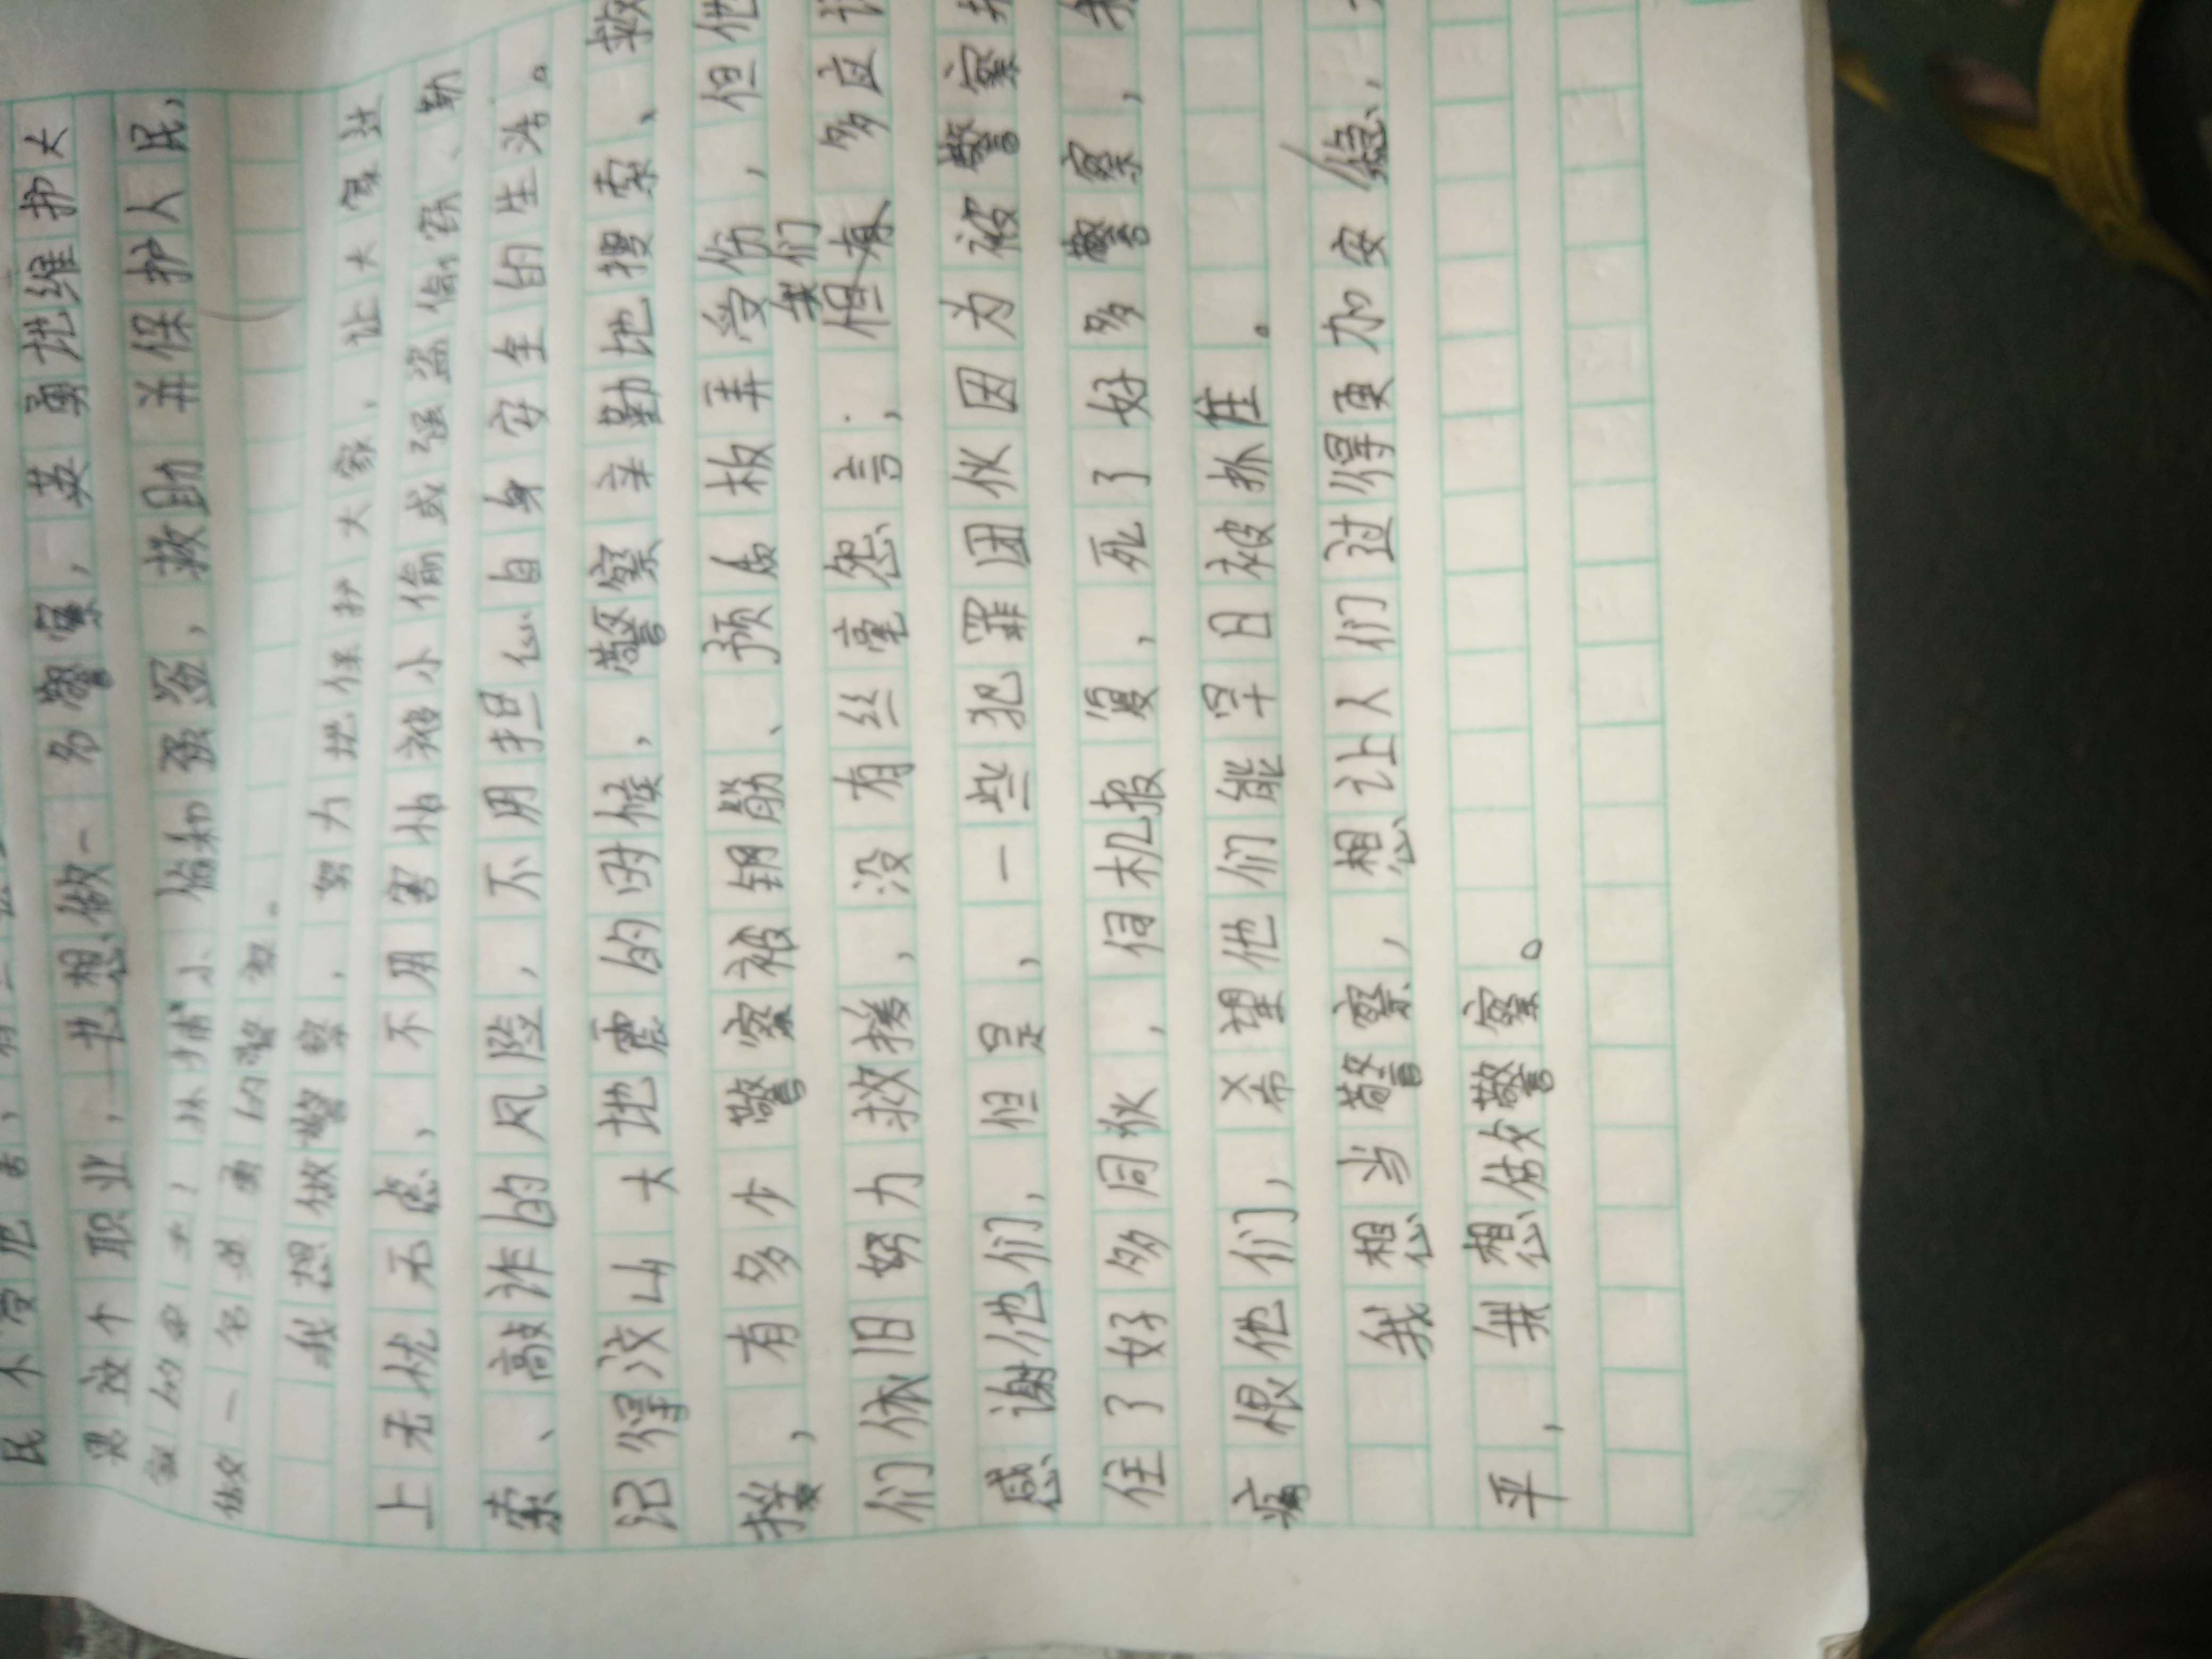 民不受
这个职业，我想做一名警察，英勇地维护大
小偷和强盗，救助并保护人民，
做一名英勇的警察。
我想做警察，努力地保护大家，让大家过
上无忧无虑、不用害怕被小偷或强盗偷窃、勒
索、敲诈的风险，不用担心自身安全的生活。
记得汶山大地震的时候，警察辛勤地搜索、救
援，有多少警察被钢筋、预质板弄受伤，但他
们依旧努力救援，没有丝毫怨言，我们多应该
感谢他们，但是，一些犯罪团伙因为被警察抓
住了好多同伙，伺机报复，死了好多警察，我
痛恨他们，希望他们能早日被抓住。
我想当警察，想让人们过得更加安稳、
平，我想做警察。